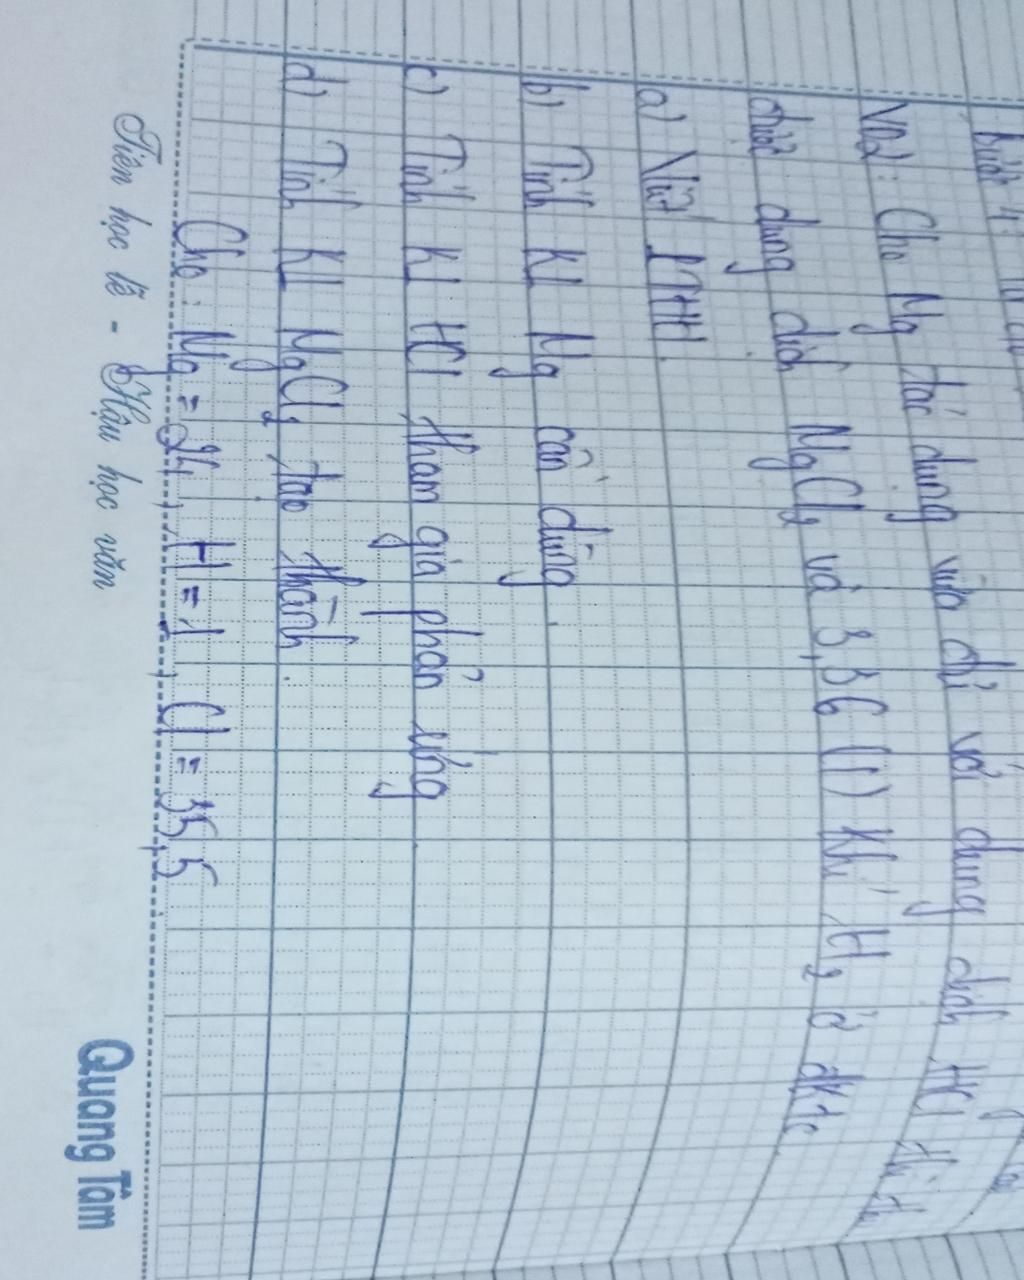 Bước 4:
VD2: Cho Mg tác dụng vừa đủ với dung dịch HCl thì thu
được dung dịch MgCl2 và 3,36 (l) khí H2 ở đktc
a) Viết PTHH
b) Tính Kl Mg cần dùng.
c) Tính Kl HCl tham gia phản ứng
d) Tính Kl MgCl2 tạo thành.
Cho: Mg = 24, H = 1, Cl = 35,5
Tiên học lễ - Hậu học văn
Quang Tâm